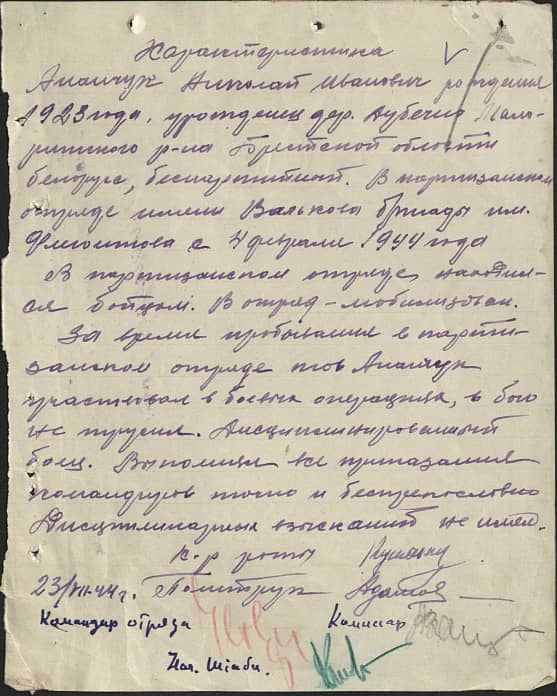 Характеристика
Апанчук Николай Иванович рождения
1923 года, уроженец дер. Дубечно Мало-
ритского р-на Брестской области
белорус, беспартийный. В партизанском
отряде имени Валькова бригады им.
с 4 февраля 1944 года
В партизанском отряде находил-
ся бойцом. В отряд - мобилизован.
За время пребывания в парти-
занском отряде тов Апанчук
участвовал в боевых операциях, в бою
не трусил. Дисциплинированный
боец. Выполнял все приказания
командиров точно и беспрекословно
Дисциплинарных взысканий не имел.
К-р роты
23/VII-44 г. Политрук Адамов
Командир отряда Комиссар
Нач. Штаба.